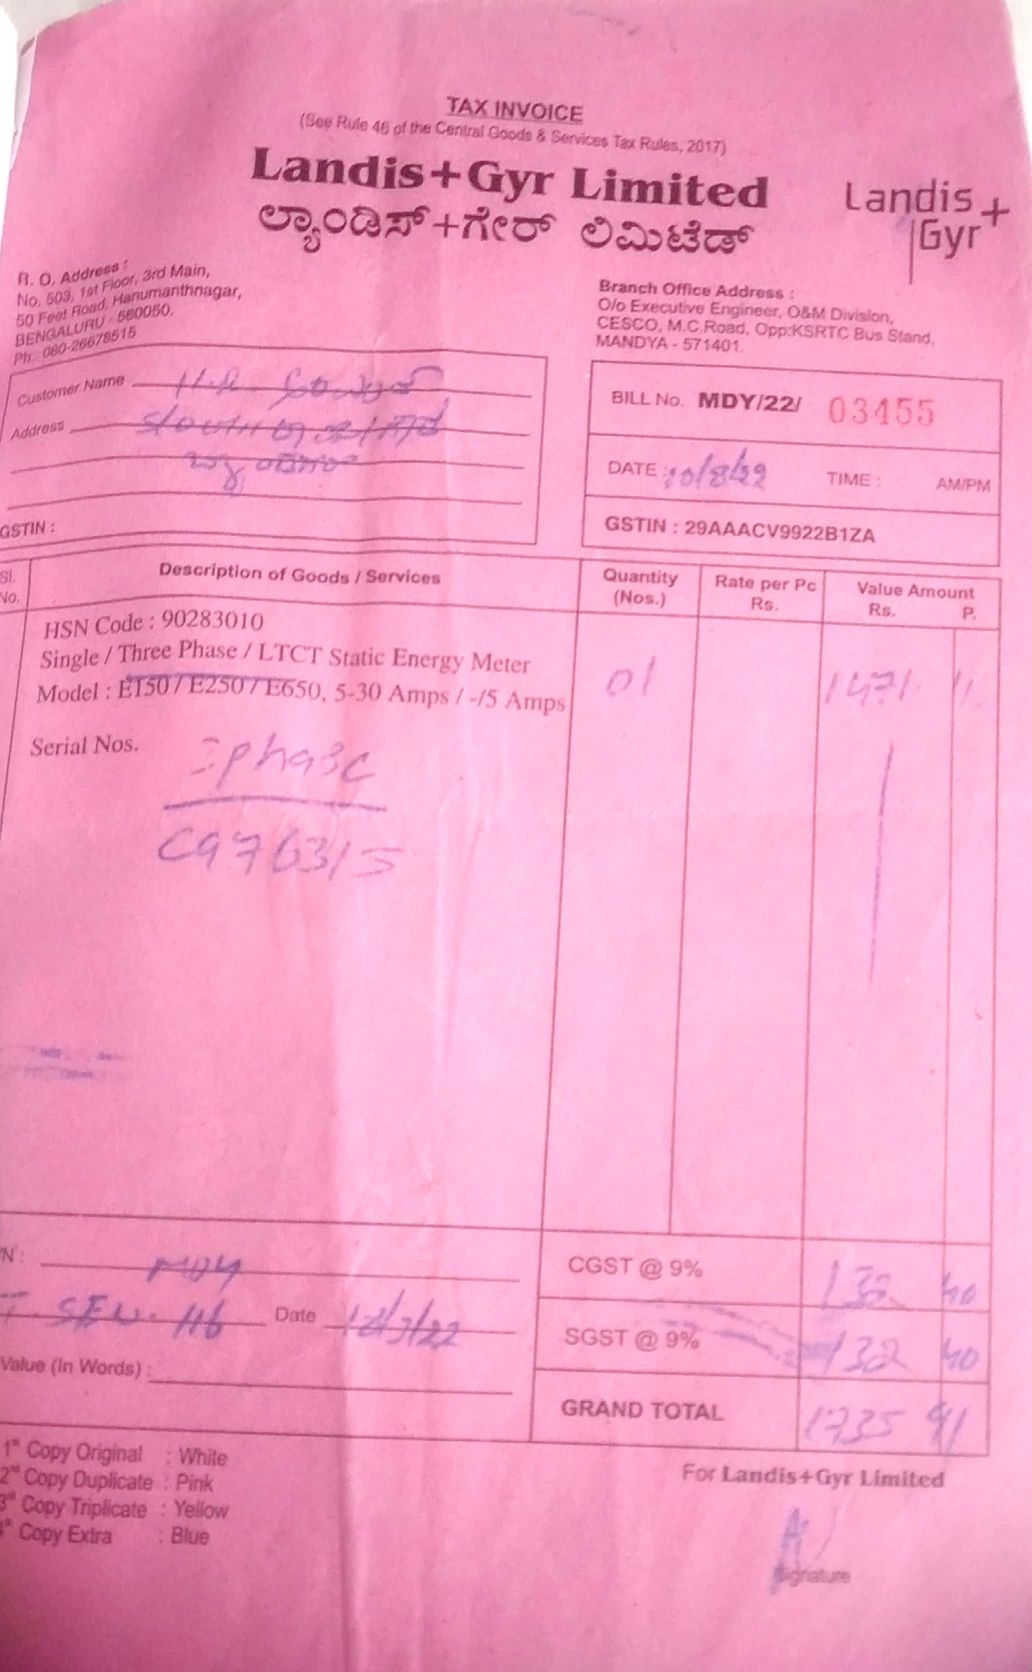 TAX INVOICE
(See Rule 46 of the Central Goods & Services Tax Rules, 2017)
Landis+Gyr Limited
ಲ್ಯಾಂಡಿಸ್+ಗೇರ್ ಲಿಮಿಟೆಡ್
Landis+
Gyr
R. O. Address :
No. 503, 1st Floor, 3rd Main,
50 Feet Road, Hanumanthnagar,
BENGALURU - 560050.
Ph: 080-26678515
Branch Office Address :
O/o Executive Engineer, O&M Division,
CESCO, M.C.Road, Opp:KSRTC Bus Stand,
MANDYA - 571401.
Customer Name
Address
GSTIN :
BILL No. MDY/22/ 03455
DATE : 20/8/22 TIME : AM/PM
GSTIN : 29AAACV9922B1ZA
Sl. No. Description of Goods / Services Quantity (Nos.) Rate per Pc Rs. Value Amount Rs. P.
HSN Code : 90283010
Single / Three Phase / LTCT Static Energy Meter 01 1471 11
Model : E150 / E250 / E650, 5-30 Amps / -/5 Amps
Serial Nos.
3phase
C976315
N : MDY
SEW. 116 Date 12/3/22
Value (In Words) :
CGST @ 9% 132 40
SGST @ 9% 132 40
GRAND TOTAL 1735 91
1st Copy Original : White
2nd Copy Duplicate : Pink
3rd Copy Triplicate : Yellow
Copy Extra : Blue
For Landis+Gyr Limited
Signature